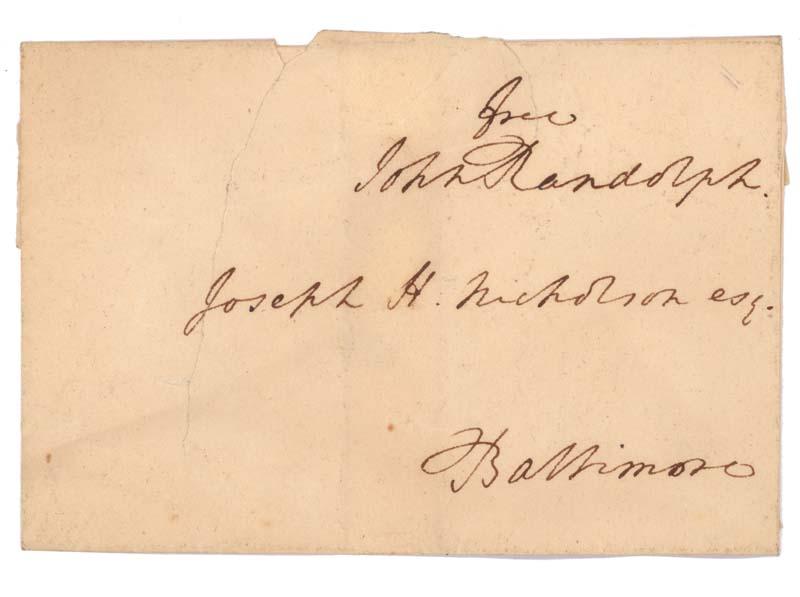 free
John Randolph.
Joseph H. Nicholson esq.
Baltimore